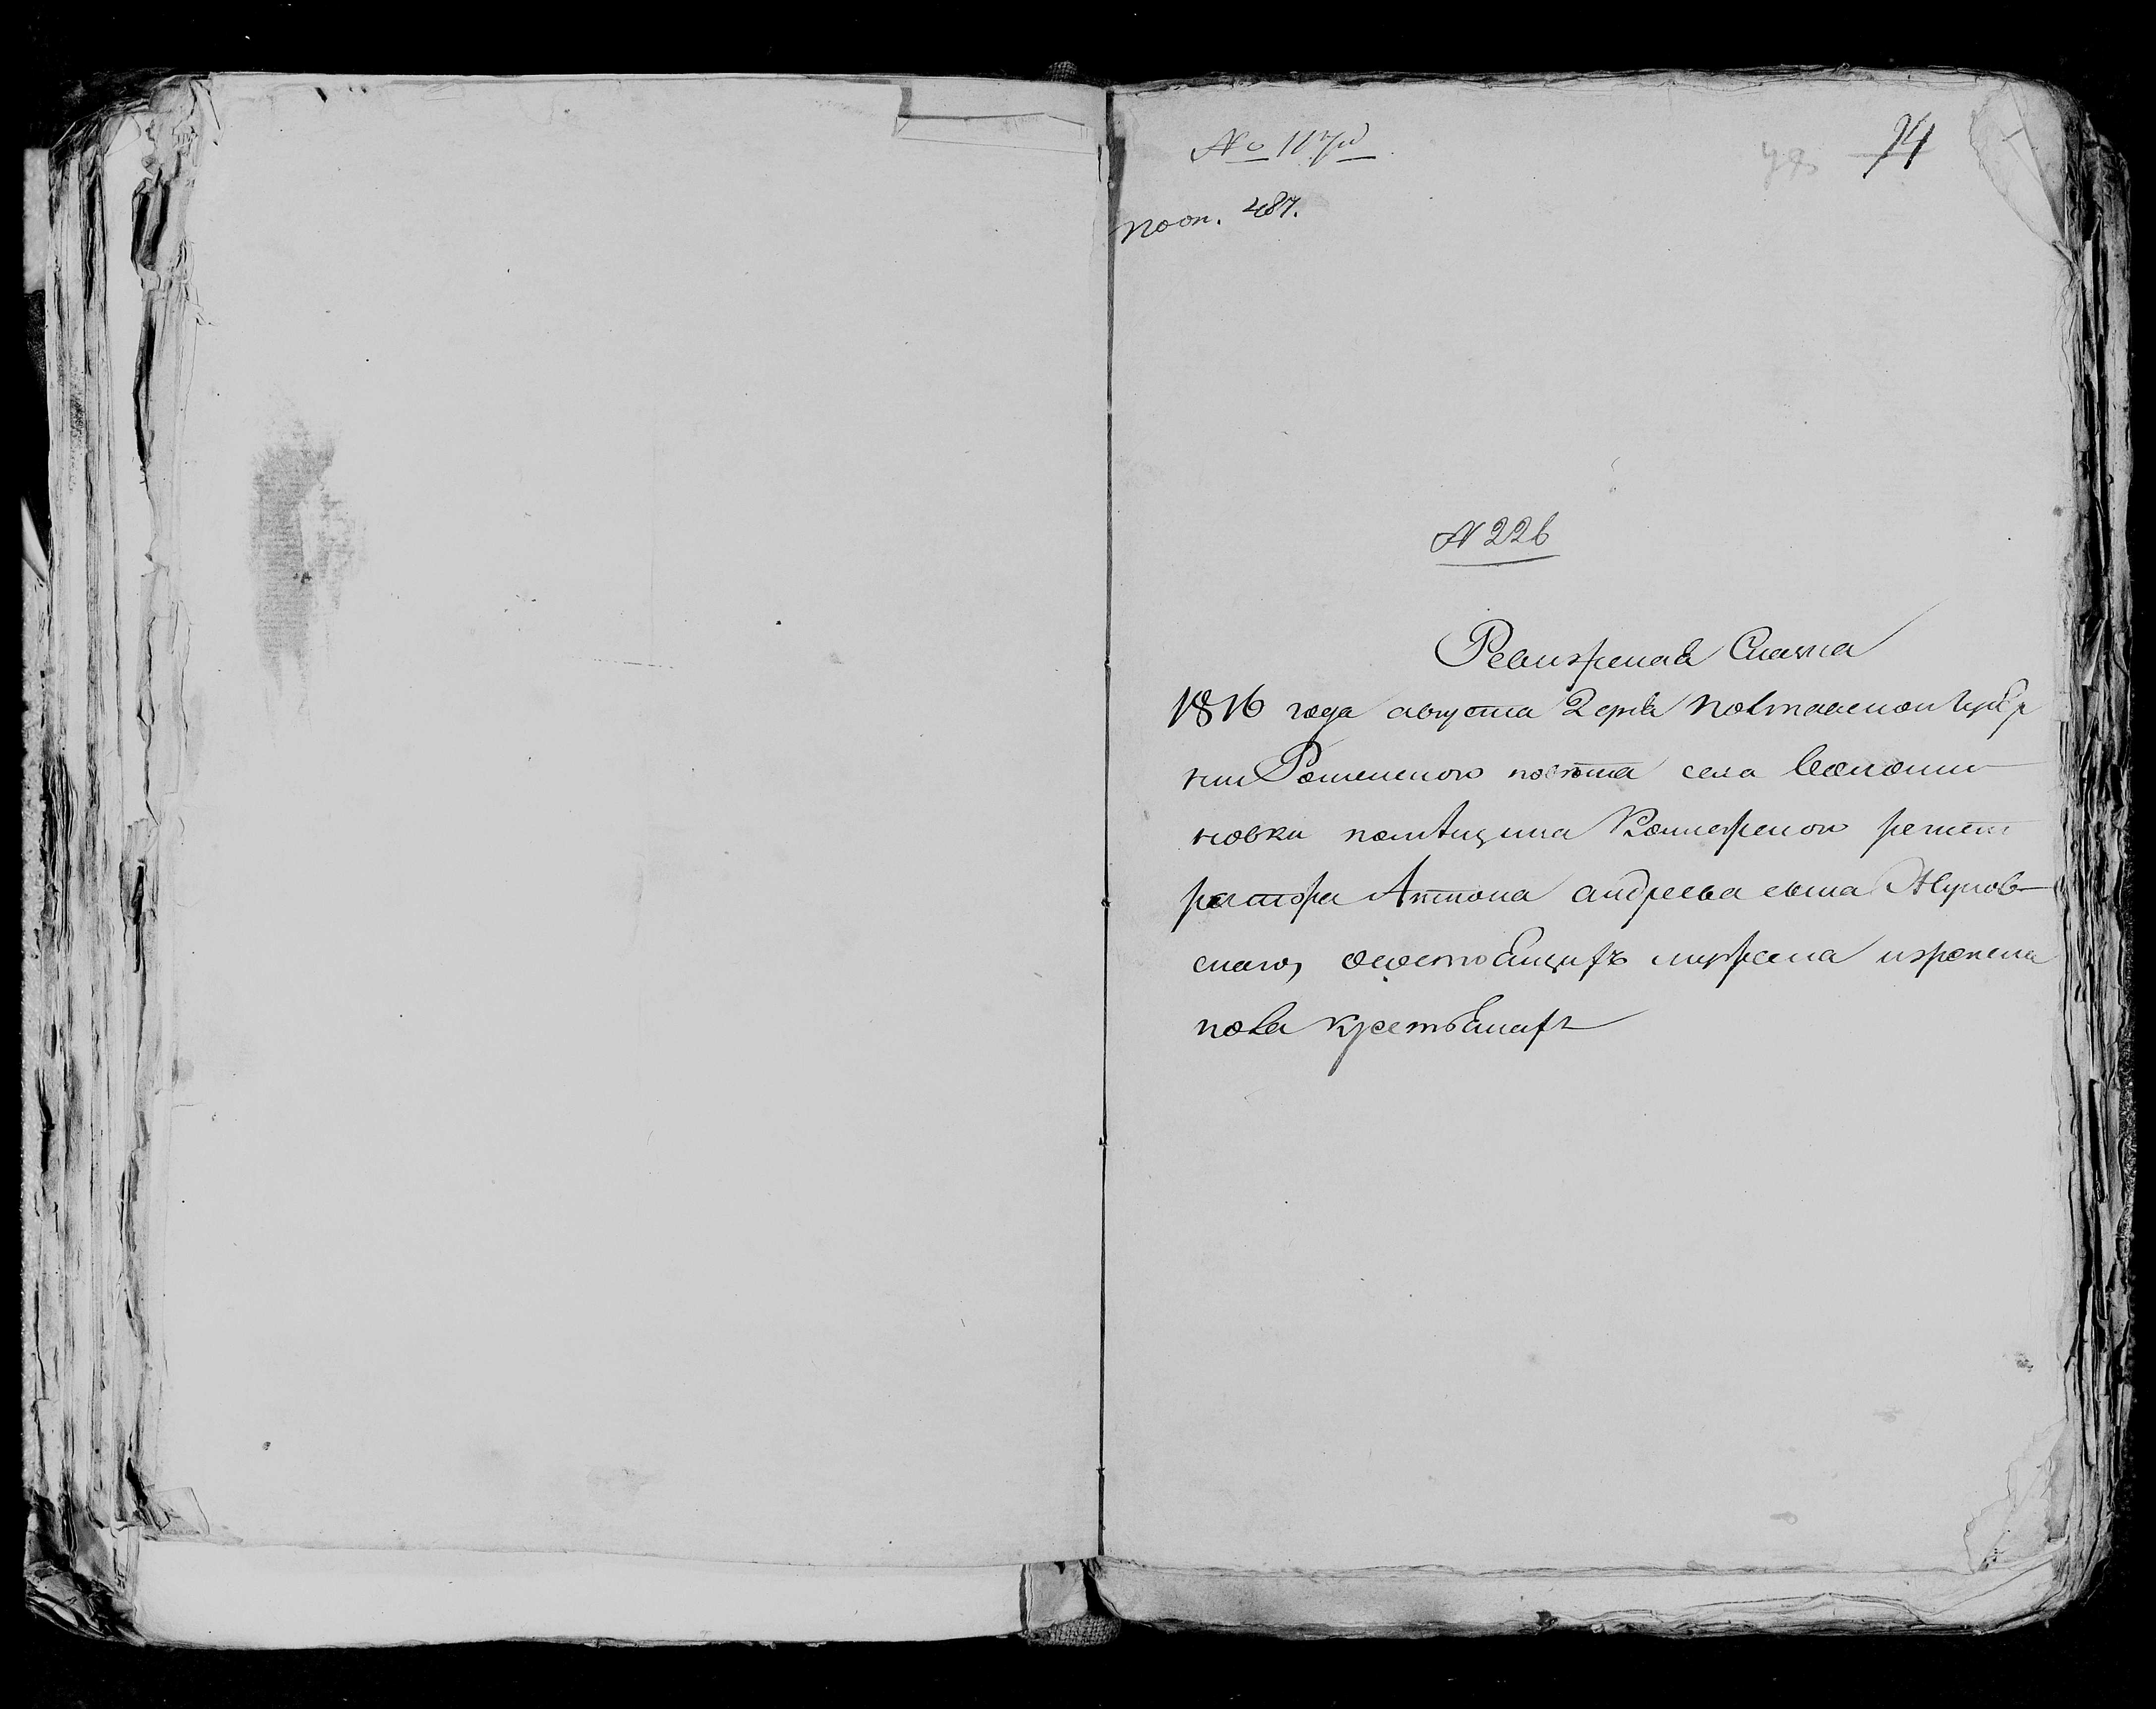 № 117й
74
пооп. 487.
№ 226
Ревизская Сказка
1816 года августа 2 дня Полтавской губер
нии Роменского повѣта села
новки помѣщика Коллежского регист
ратора Антона андреева сына Жуков
скаго, о состоящихъ мужеска и женска
пола крестьянах